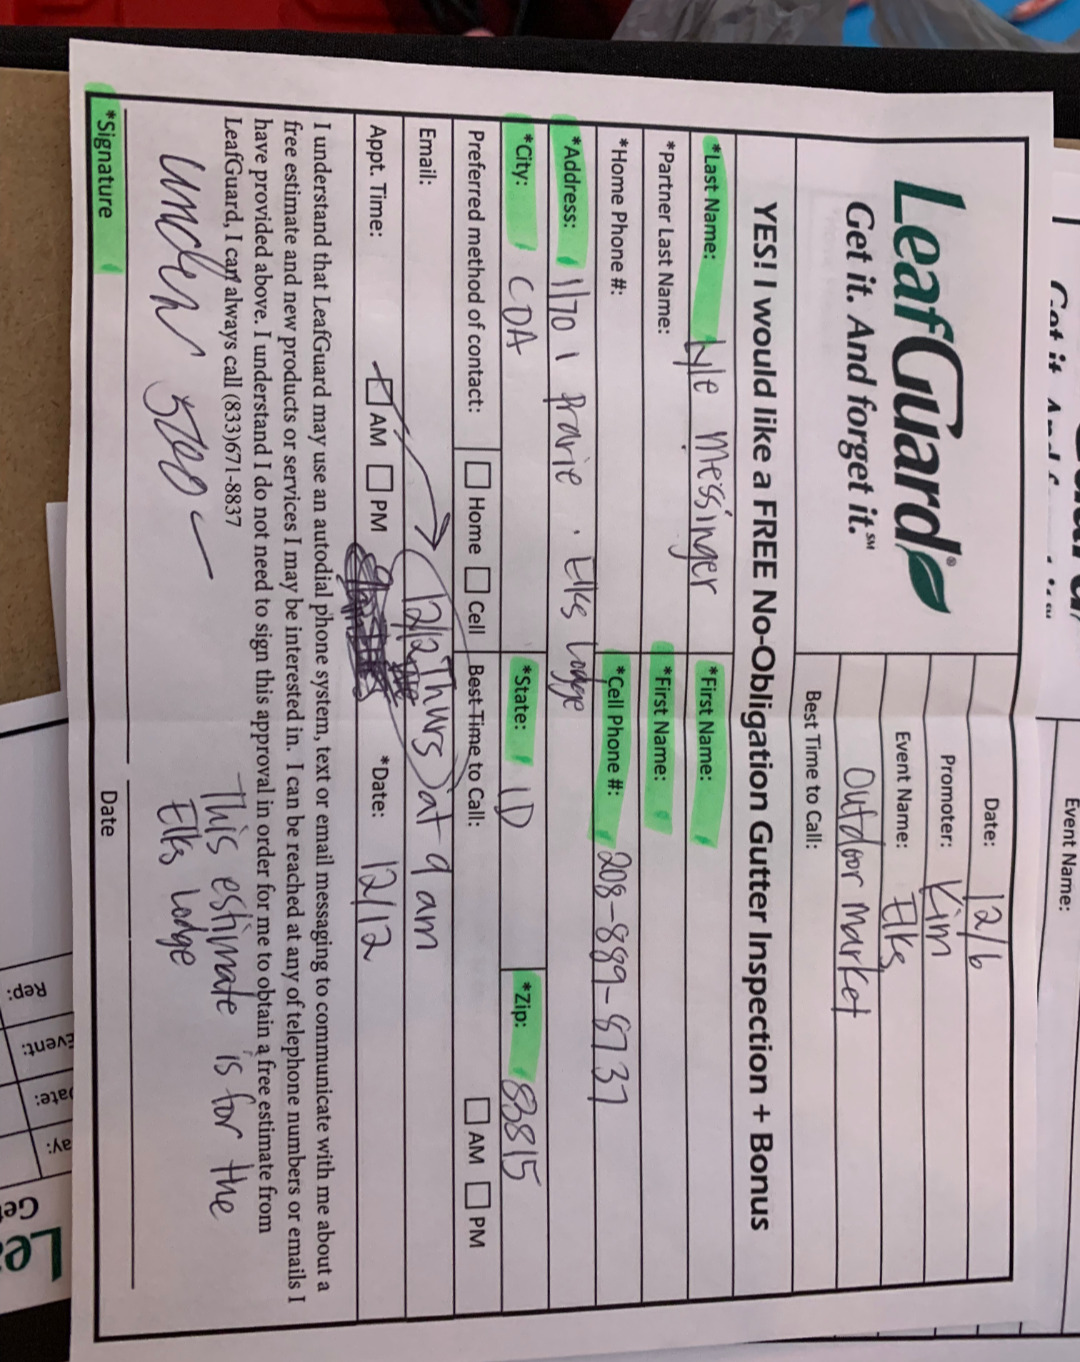 LeafGuard®
Get it. And forget it.℠
Date: 12/6
Promoter: Kim
Event Name: Elks
Outdoor Market
Best Time to Call:
YES! I would like a FREE No-Obligation Gutter Inspection + Bonus
*Last Name: Lyle Messinger *First Name:
*Partner Last Name: *First Name:
*Home Phone #: *Cell Phone #: 208-889-8737
*Address: 1170 1 Prarie . Elks Lodge
*City: CDA *State: ID *Zip: 83815
Preferred method of contact: Home Cell Best Time to Call: AM PM
Email: 12/12 Thurs at 9 am
Appt. Time: AM PM *Date: 12/12
I understand that LeafGuard may use an autodial phone system, text or email messaging to communicate with me about a
free estimate and new products or services I may be interested in. I can be reached at any of telephone numbers or emails I
have provided above. I understand I do not need to sign this approval in order for me to obtain a free estimate from
LeafGuard, I can always call (833)671-8837
This estimate is for the
Elks Lodge
under 5700
*Signature Date
Event Name:
Rep:
Event:
Date: